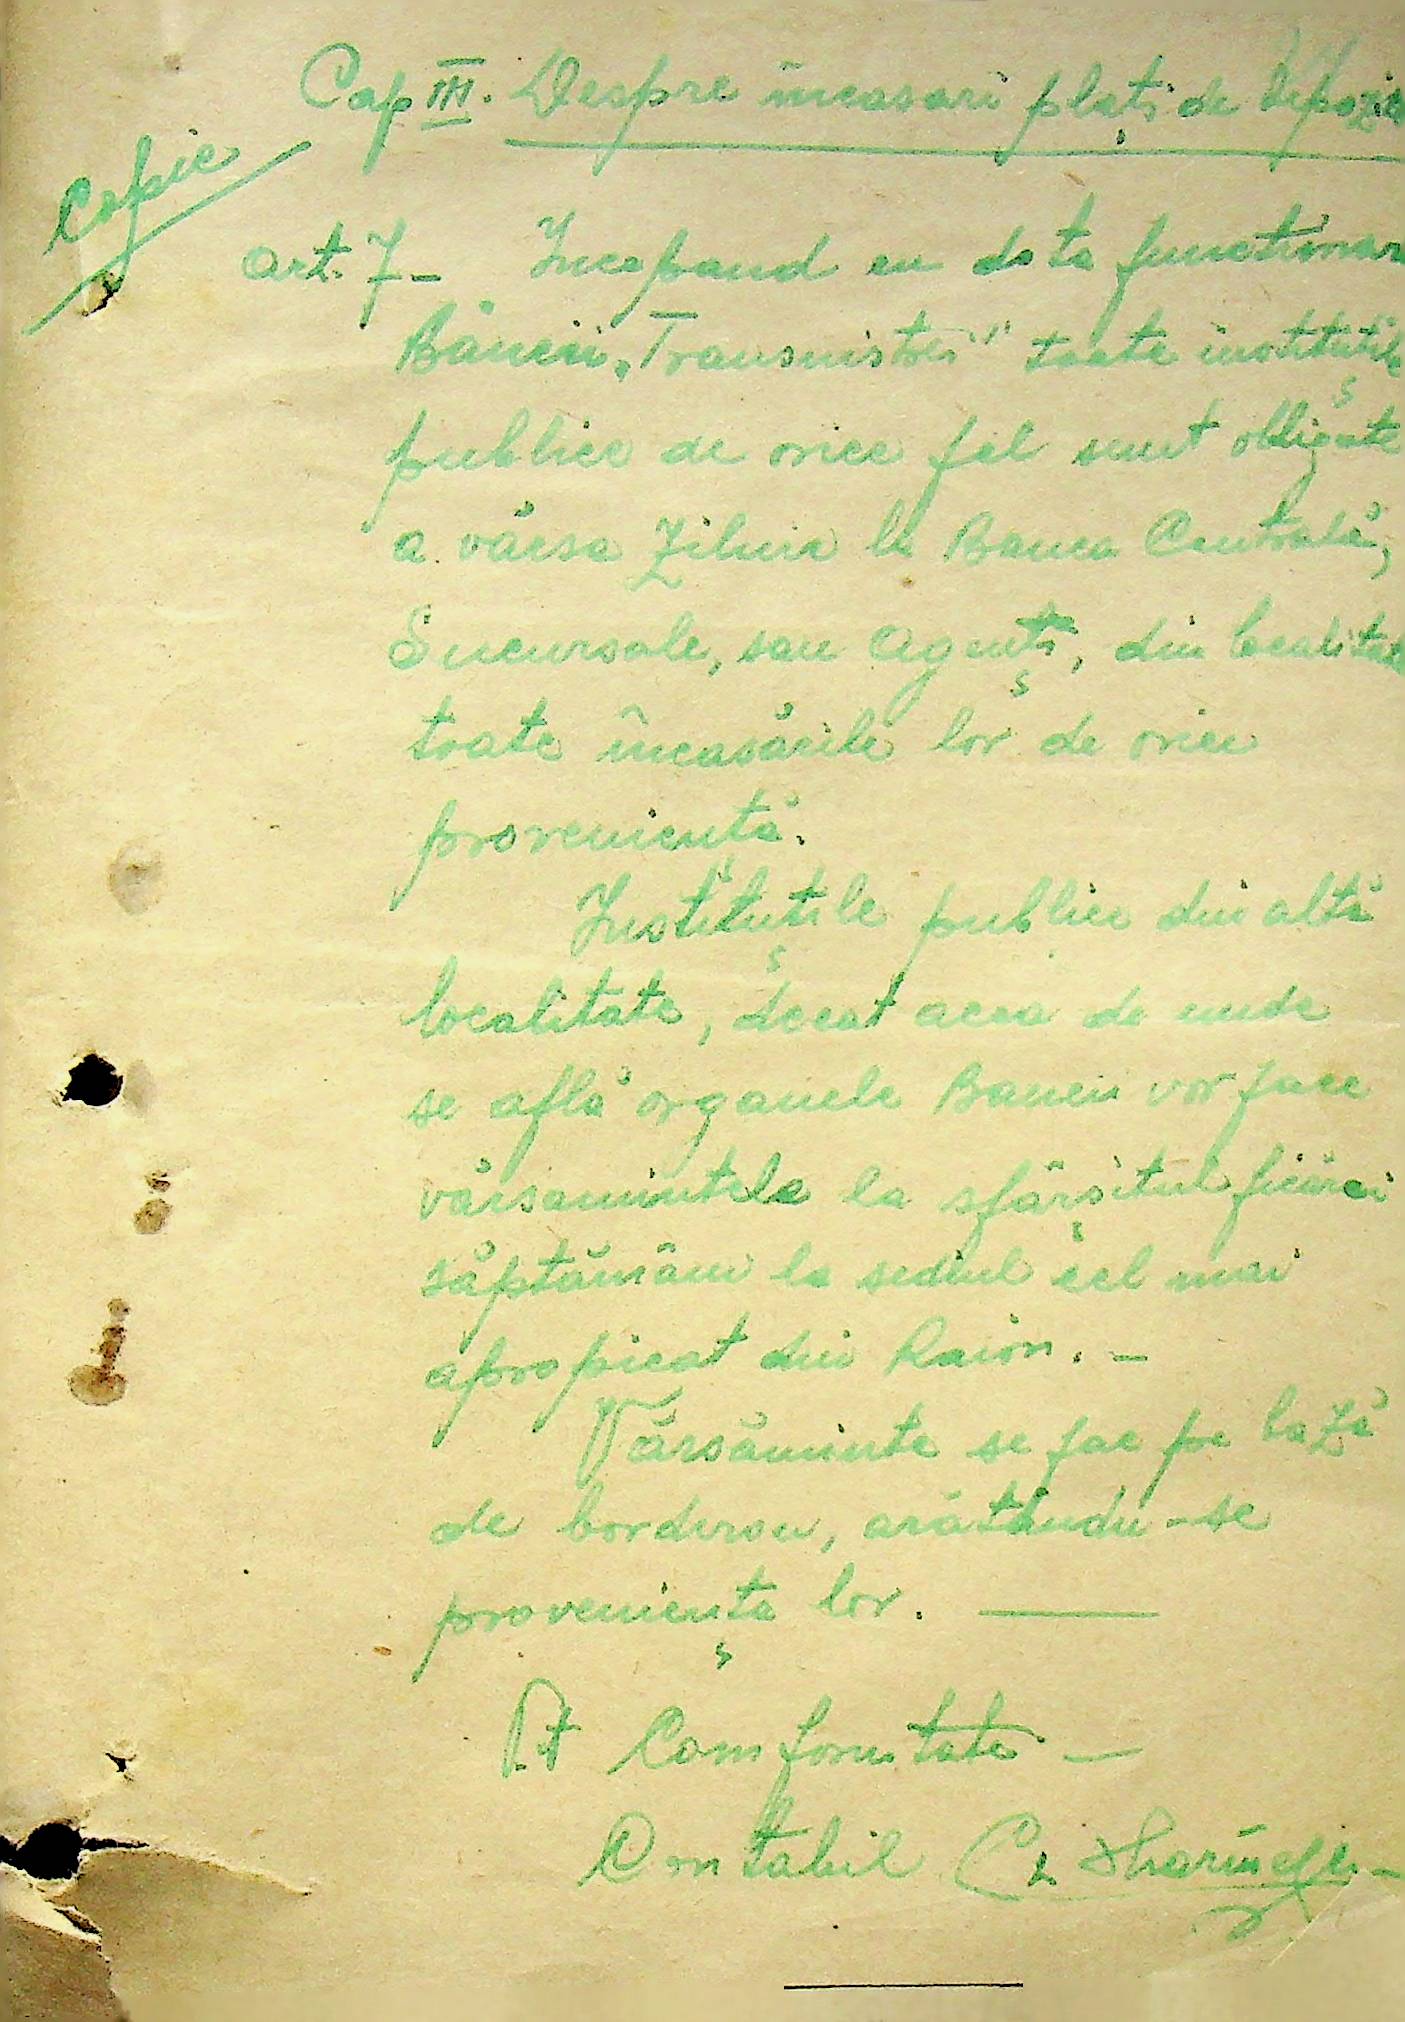 Cap III. Despre incasari plați de depozite
Copie
Art. 7 - Incepand cu data functionar
Băncii „Transnistrei" toate instituțiile
publice de orice fel sunt obligate
a vărsa Zilnic la Banca Centrală,
Sucursale, sau Agenți, din localitate
toate încasările lor de orice
provenientă.
Instituțiile publice din altă
localitate, decat acea de unde
se află organele Bancii vor face
vărsamintele la sfârșitul ficărei
săptămâni la sediul cel mai
apropieat din Raion. -
Vărsăminte se fac pe bază
de borderou, arătându-se
provenienta lor. —
Pt Comformitate —
Contabil